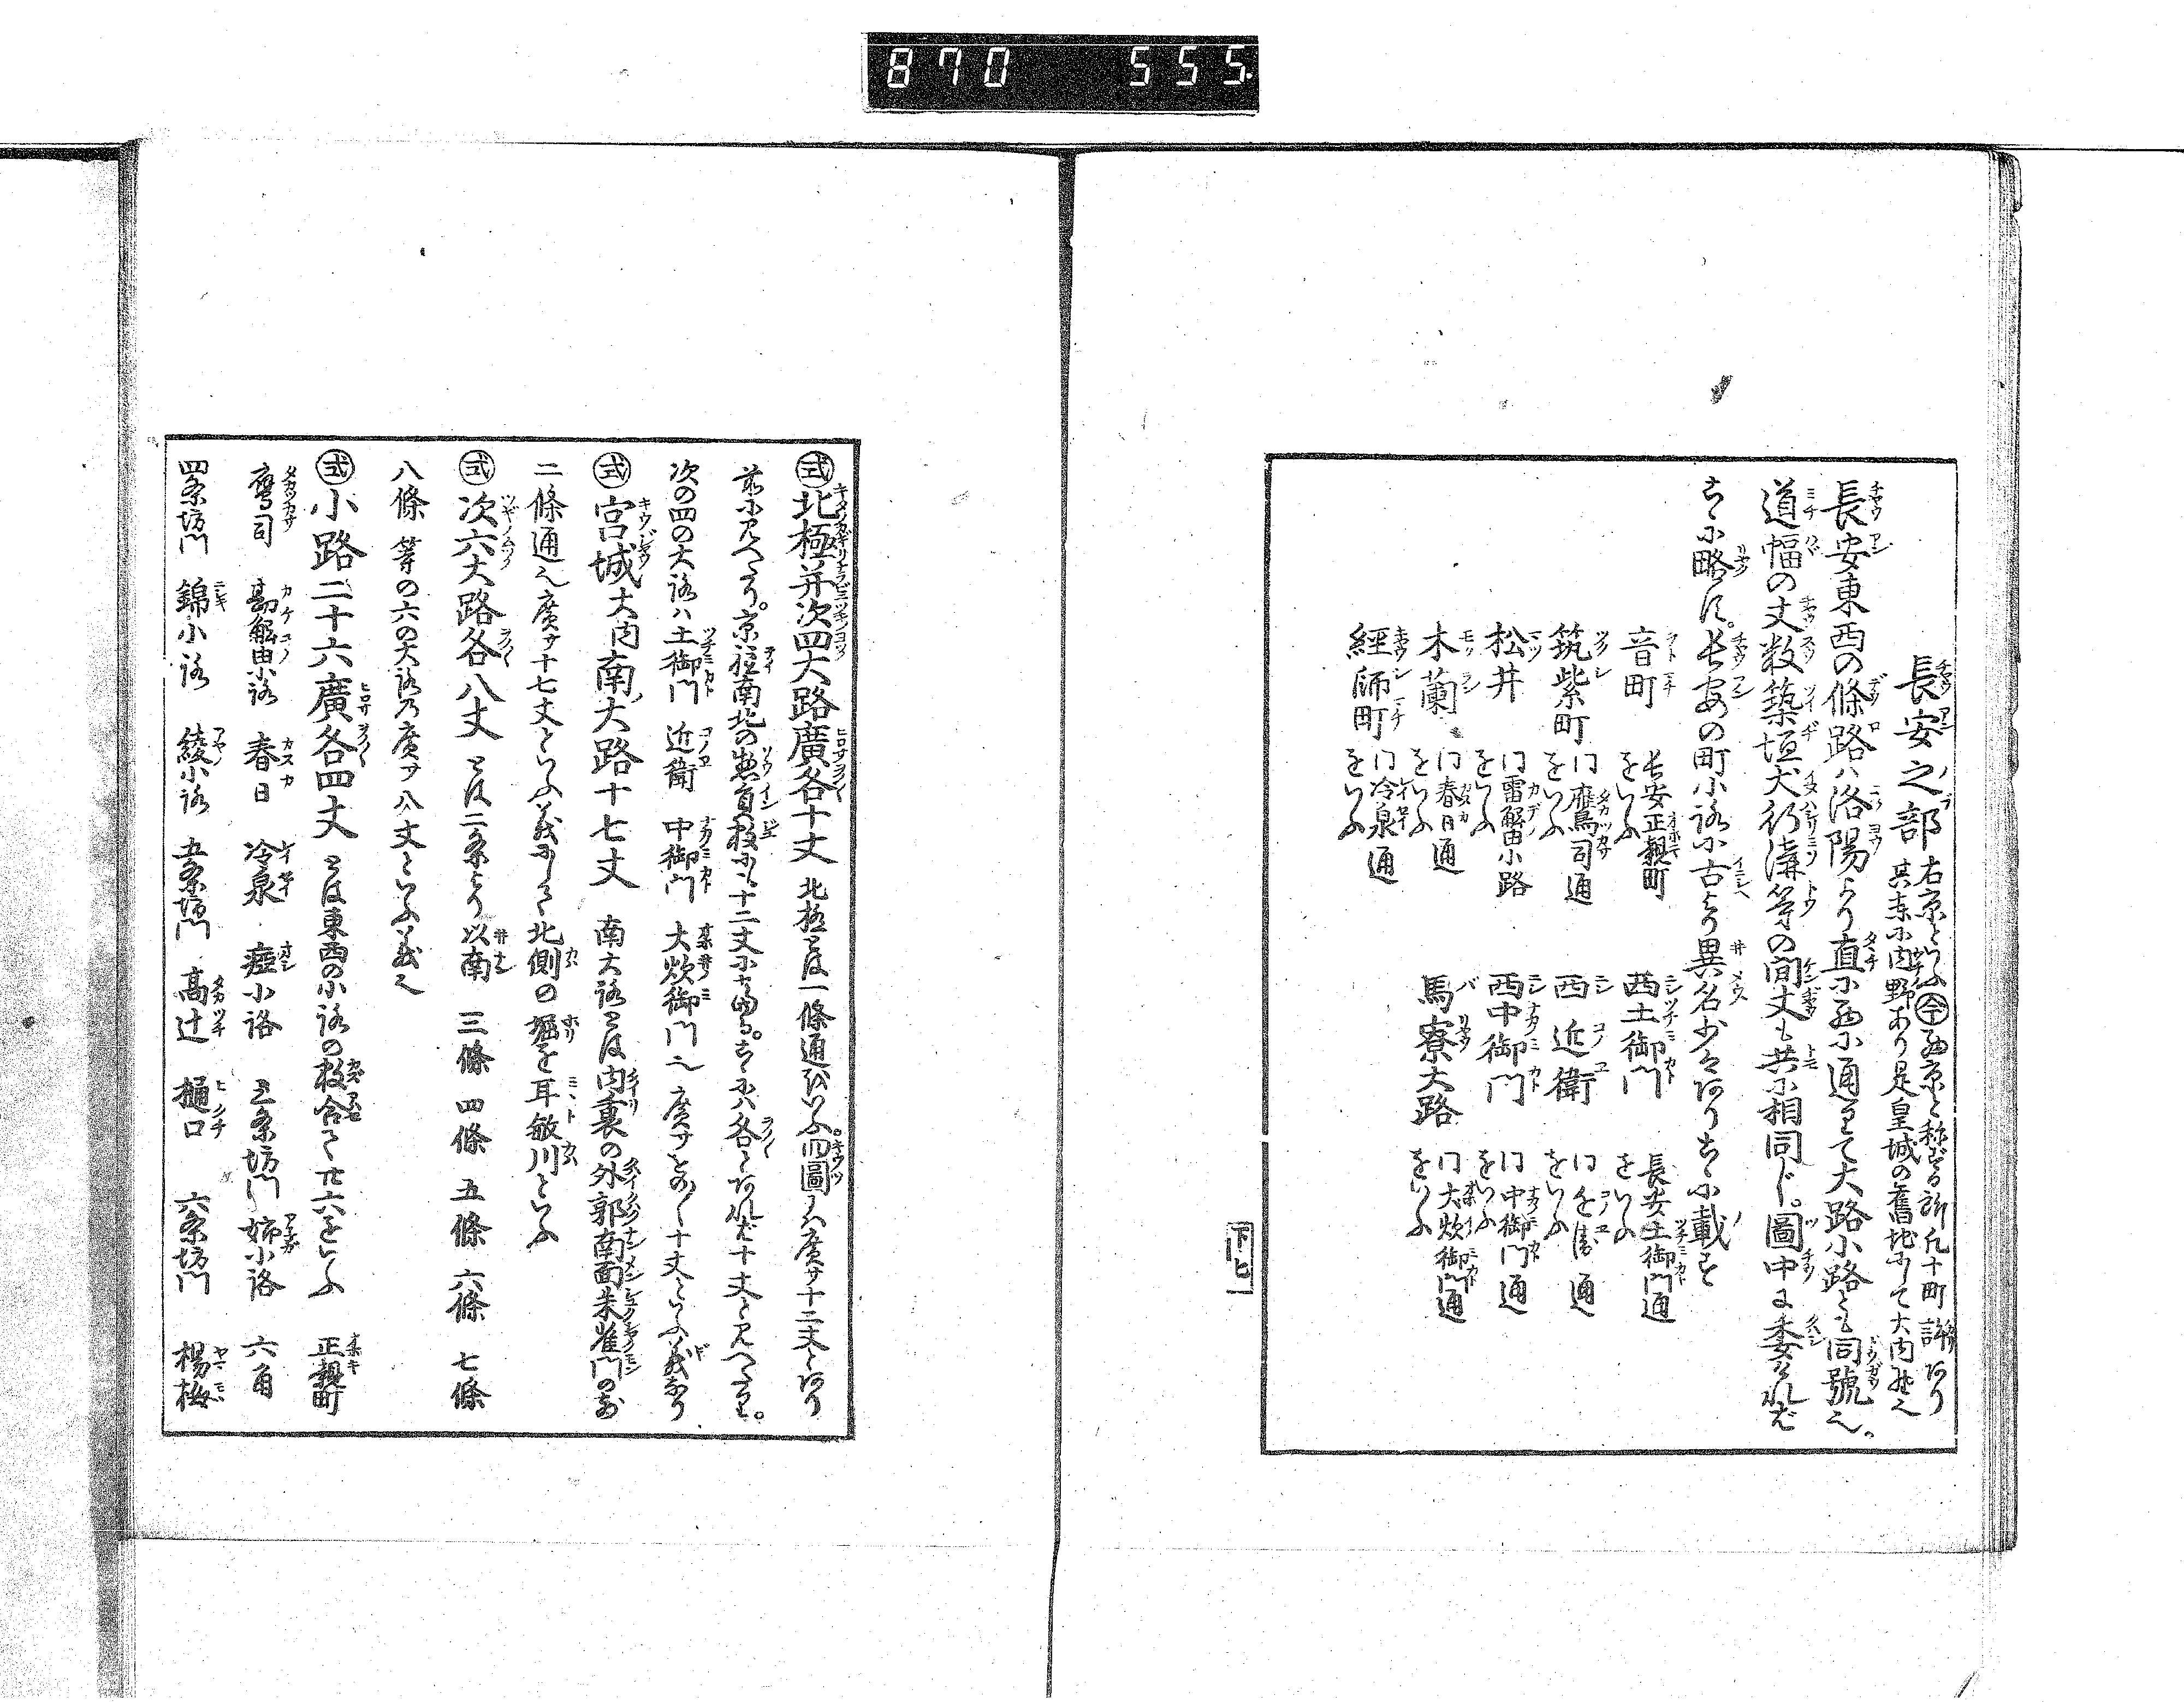 870 555
長安之部 右京といふ㊂今西京と称ずる所凡十町許あり
其東に内野あり是皇城の舊地にして大内野也
長安東西の條路ハ洛陽より直に西に通りて大路小路とも同號也。
道幅の丈数築垣犬行溝等の間丈も共に相同じ。圖中に委それバ
こゝに略す。長安の町小路に古より異名少々ありこゝに載す
音町 長安正親町をいふ 西土御門 長安土御門通をいふ
筑紫町 同鷹司通をいふ 西近衛 同近衛通をいふ
松井 同勘解由小路をいふ 西中御門 同中御門通をいふ
木蘭 同春日通をいふ 馬寮大路 同大炊御門通をいふ
經師町 同冷泉通をいふ
下 七
式 北極并次四大路廣各十丈 北極とは一條通をいふ。旧圖にハ廣サ十二丈とあり
前に見へたり。京程南北の惣員数にも十二丈に当る。こゝにハ各とあれバ十丈と見へたり。
次の四の大路ハ土御門 近衛 中御門 大炊御門也 廣サをの〱十丈といふ義なり
式 宮城大内南大路十七丈 南大路とは内裏の外郭南面朱雀門の前
二條通也廣サ十七丈といふ義にして北側の堀を耳敏川といふ
式 次六大路各八丈 とは二条より以南 三條 四條 五條 六條 七條
八條 等の六の大路乃廣サ八丈といふ義也
式 小路二十六廣各四丈 とは東西の小路の数合て廿六をいふ 正親町
鷹司 勘解由小路 春日 冷泉 押小路 三条坊門 姉小路 六角
四条坊門 錦小路 綾小路 五条坊門 高辻 樋口 六条坊門 楊梅